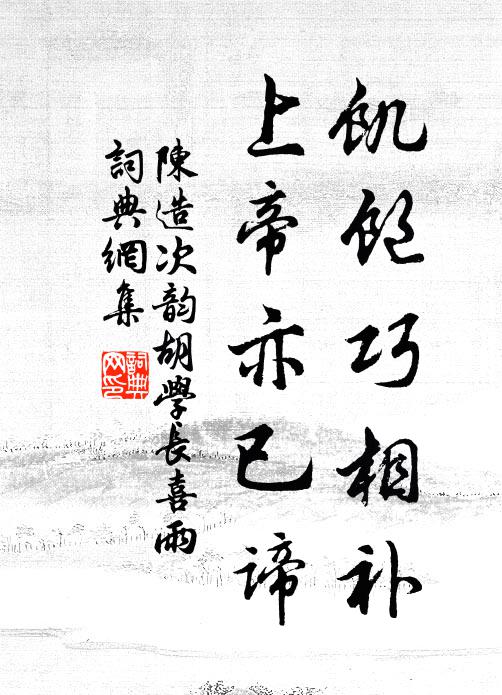 飢飽巧相补
上帝亦已諦
陳造次韵胡學長喜雨
詞典網集
詞典
网印